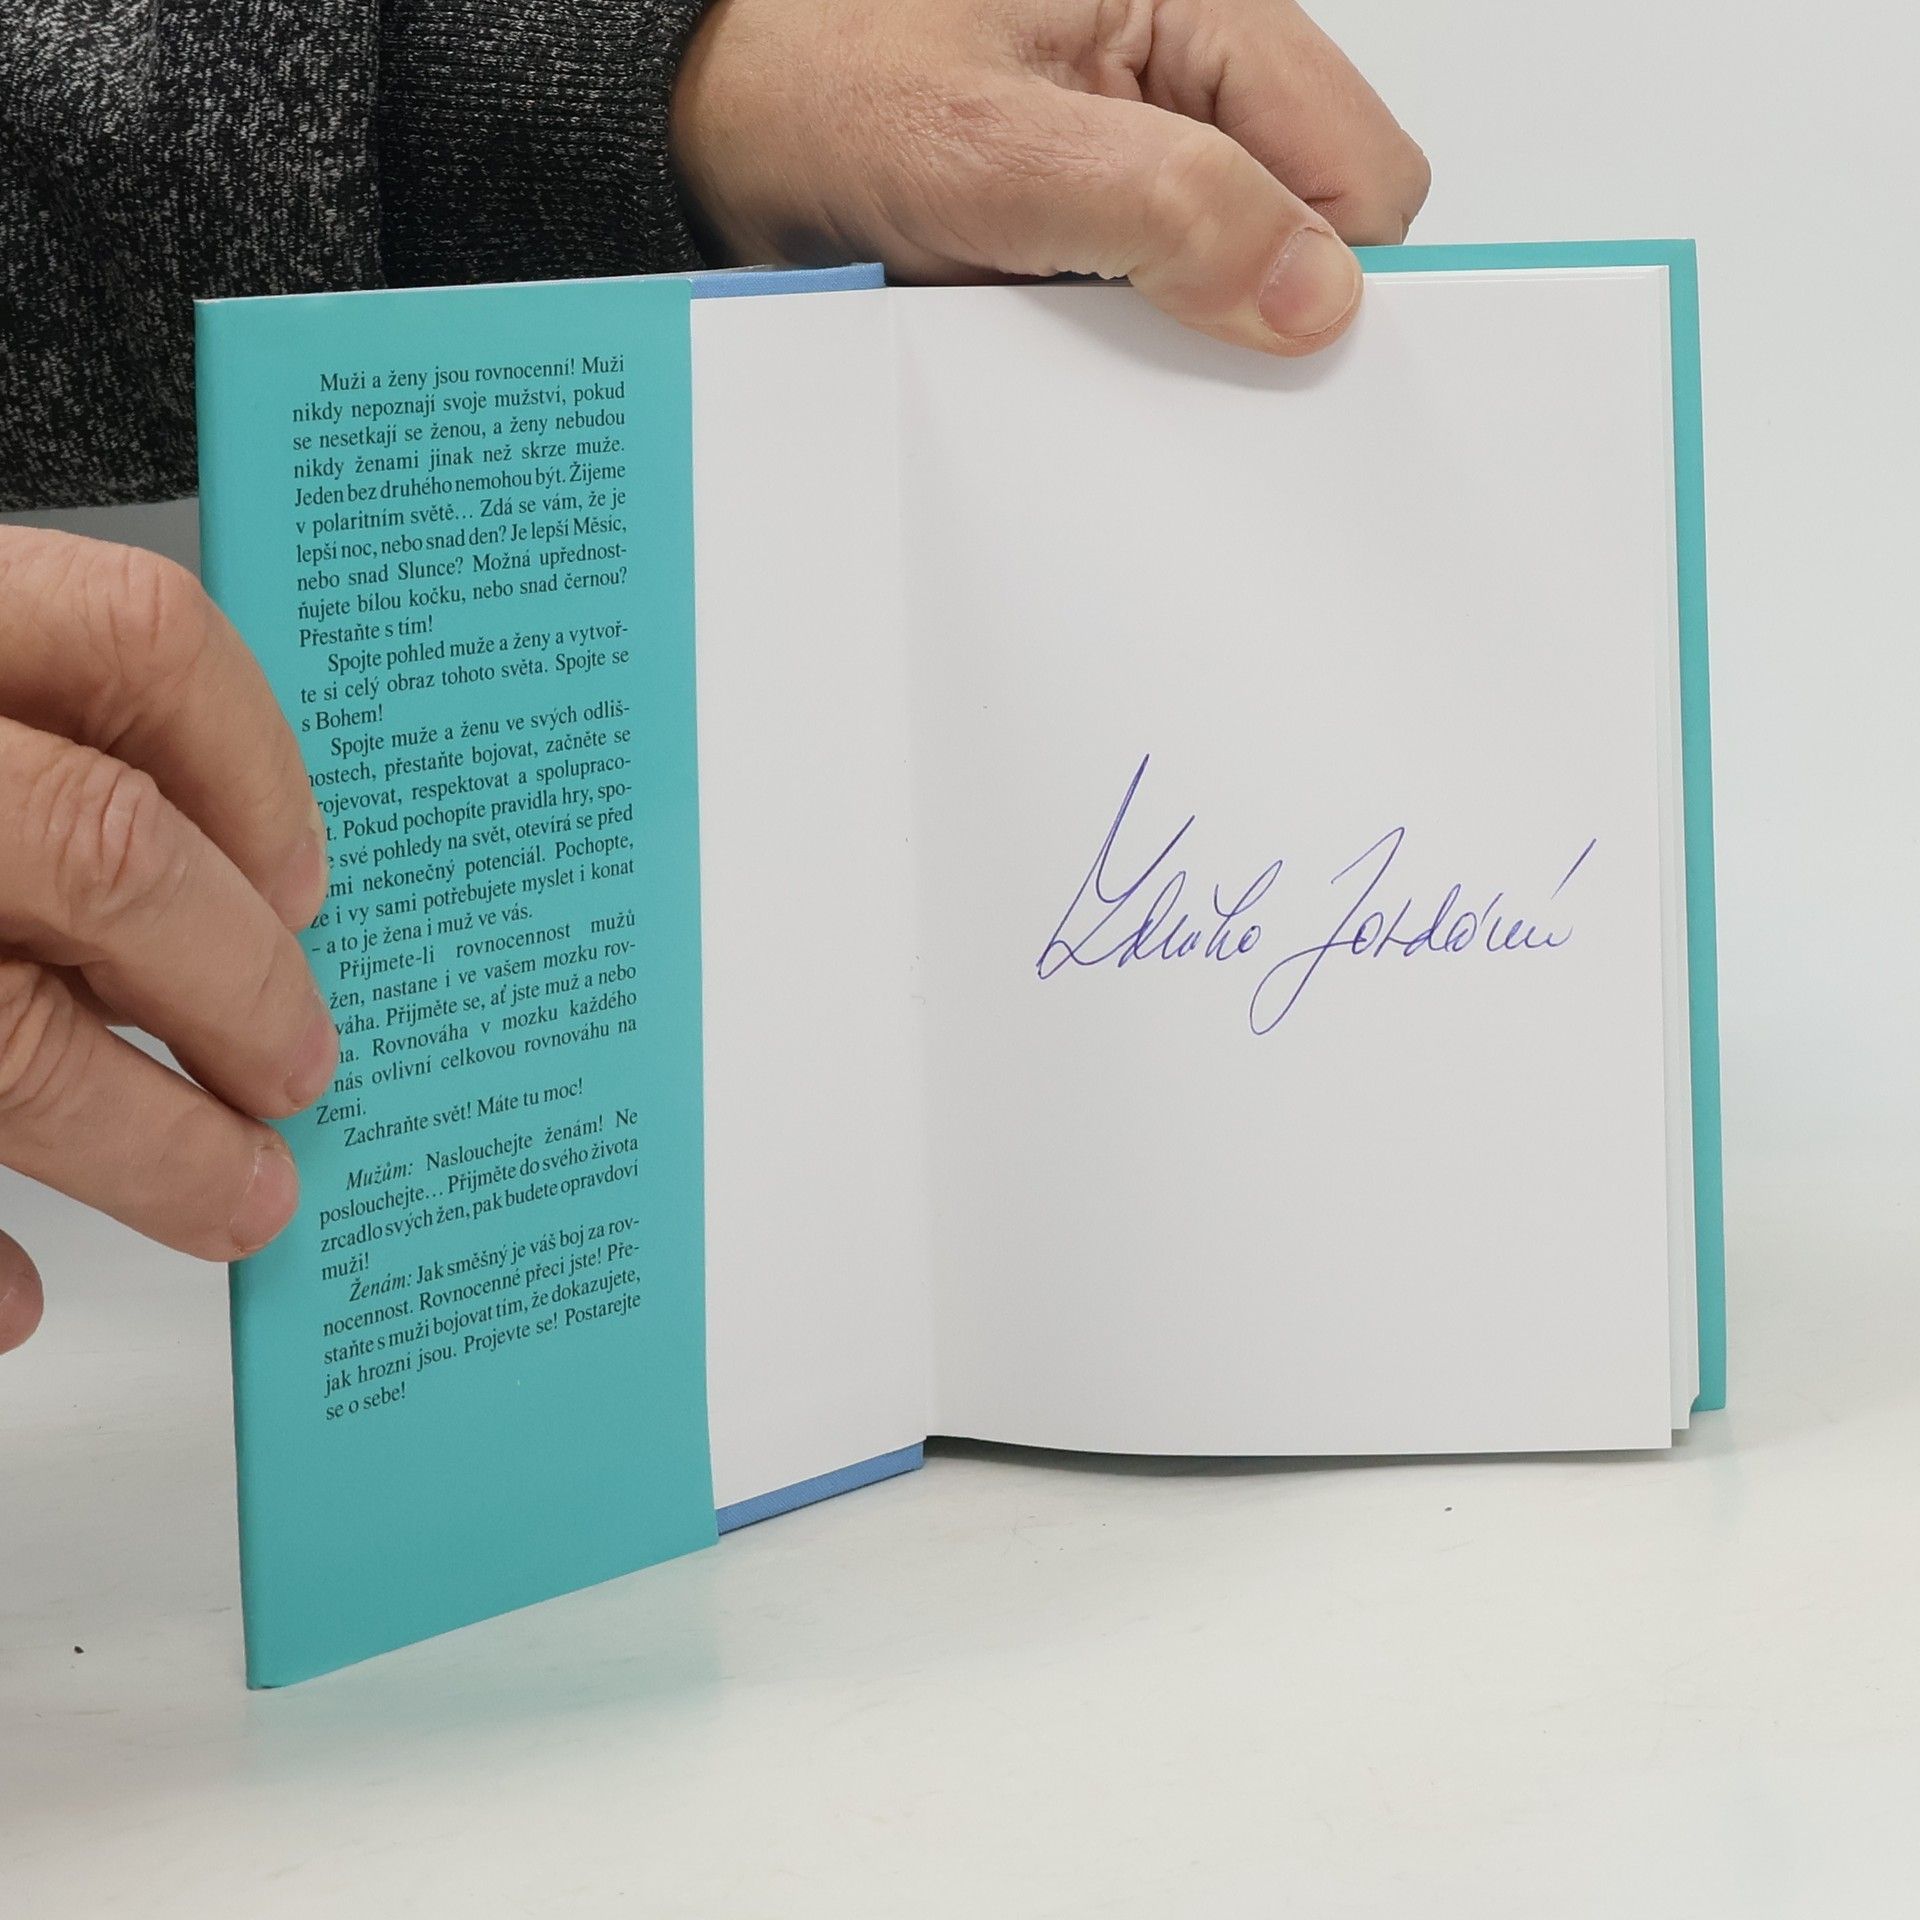 Muži a ženy jsou rovnocenní! Muži
nikdy nepoznají svoje mužství, pokud
se nesetkají se ženou, a ženy nebudou
nikdy ženami jinak než skrze muže.
Jeden bez druhého nemohou být. Žijeme
v polaritním světě… Zdá se vám, že je
lepší noc, nebo snad den? Je lepší Měsíc,
nebo snad Slunce? Možná upřednost-
ňujete bílou kočku, nebo snad černou?
Přestaňte s tím!
Spojte pohled muže a ženy a vytvoř-
te si celý obraz tohoto světa. Spojte se
s Bohem!
Spojte muže a ženu ve svých odliš-
nostech, přestaňte bojovat, začněte se
rojevovat, respektovat a spolupraco-
t. Pokud pochopíte pravidla hry, spo-
e své pohledy na svět, otevírá se před
mi nekonečný potenciál. Pochopte,
že i vy sami potřebujete myslet i konat
– a to je žena i muž ve vás.
Přijmete-li rovnocennost mužů
žen, nastane i ve vašem mozku rov-
váha. Přijměte se, ať jste muž a nebo
na. Rovnováha v mozku každého
nás ovlivní celkovou rovnováhu na
Zemi.
Zachraňte svět! Máte tu moc!
Mužům: Naslouchejte ženám! Ne
poslouchejte… Přijměte do svého života
zrcadlo svých žen, pak budete opravdoví
muži!
Ženám: Jak směšný je váš boj za rov-
nocennost. Rovnocenné přeci jste! Pře-
staňte s muži bojovat tím, že dokazujete,
jak hrozní jsou. Projevte se! Postarejte
se o sebe!
Zdeňka Jordánová